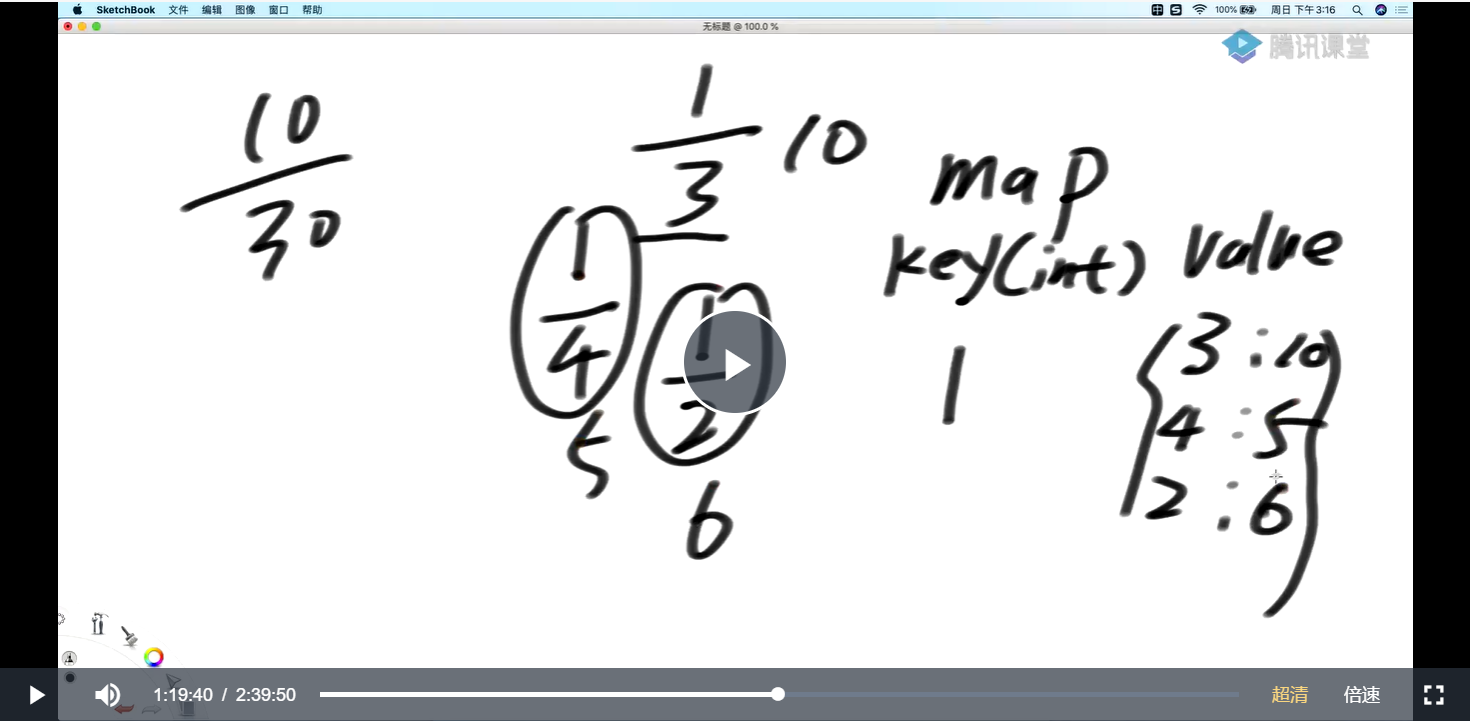 SketchBook 文件 编辑 图像 窗口 帮助 100% 周日 下午3:16
无标题 @ 100.0 %
腾讯课堂
10
30
1
3
10
1
4
5
1
2
6
map
key(int) value
1
{3:10
4:5
2:6}
1:19:40 / 2:39:50 超清 倍速